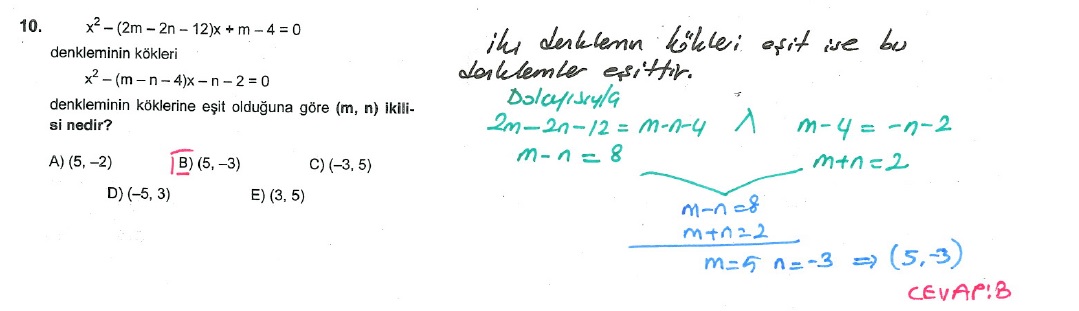 10. x² – (2m – 2n – 12)x + m – 4 = 0
denkleminin kökleri
x² – (m – n – 4)x – n – 2 = 0
denkleminin köklerine eşit olduğuna göre (m, n) ikili-
si nedir?
A) (5, –2) B) (5, –3) C) (–3, 5)
D) (–5, 3) E) (3, 5)
iki denklemin kökleri eşit ise bu
denklemler eşittir.
Dolayısıyla
2m-2n-12 = m-n-4 ∧ m-4 = -n-2
m-n = 8 m+n = 2
m-n = 8
m+n = 2
m=5 n=-3 ⇒ (5,-3)
CEVAP:B